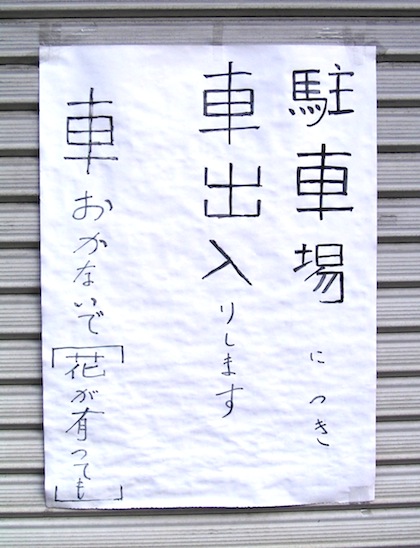 駐車場につき
車出入りします
車おかないで[花が有っても]